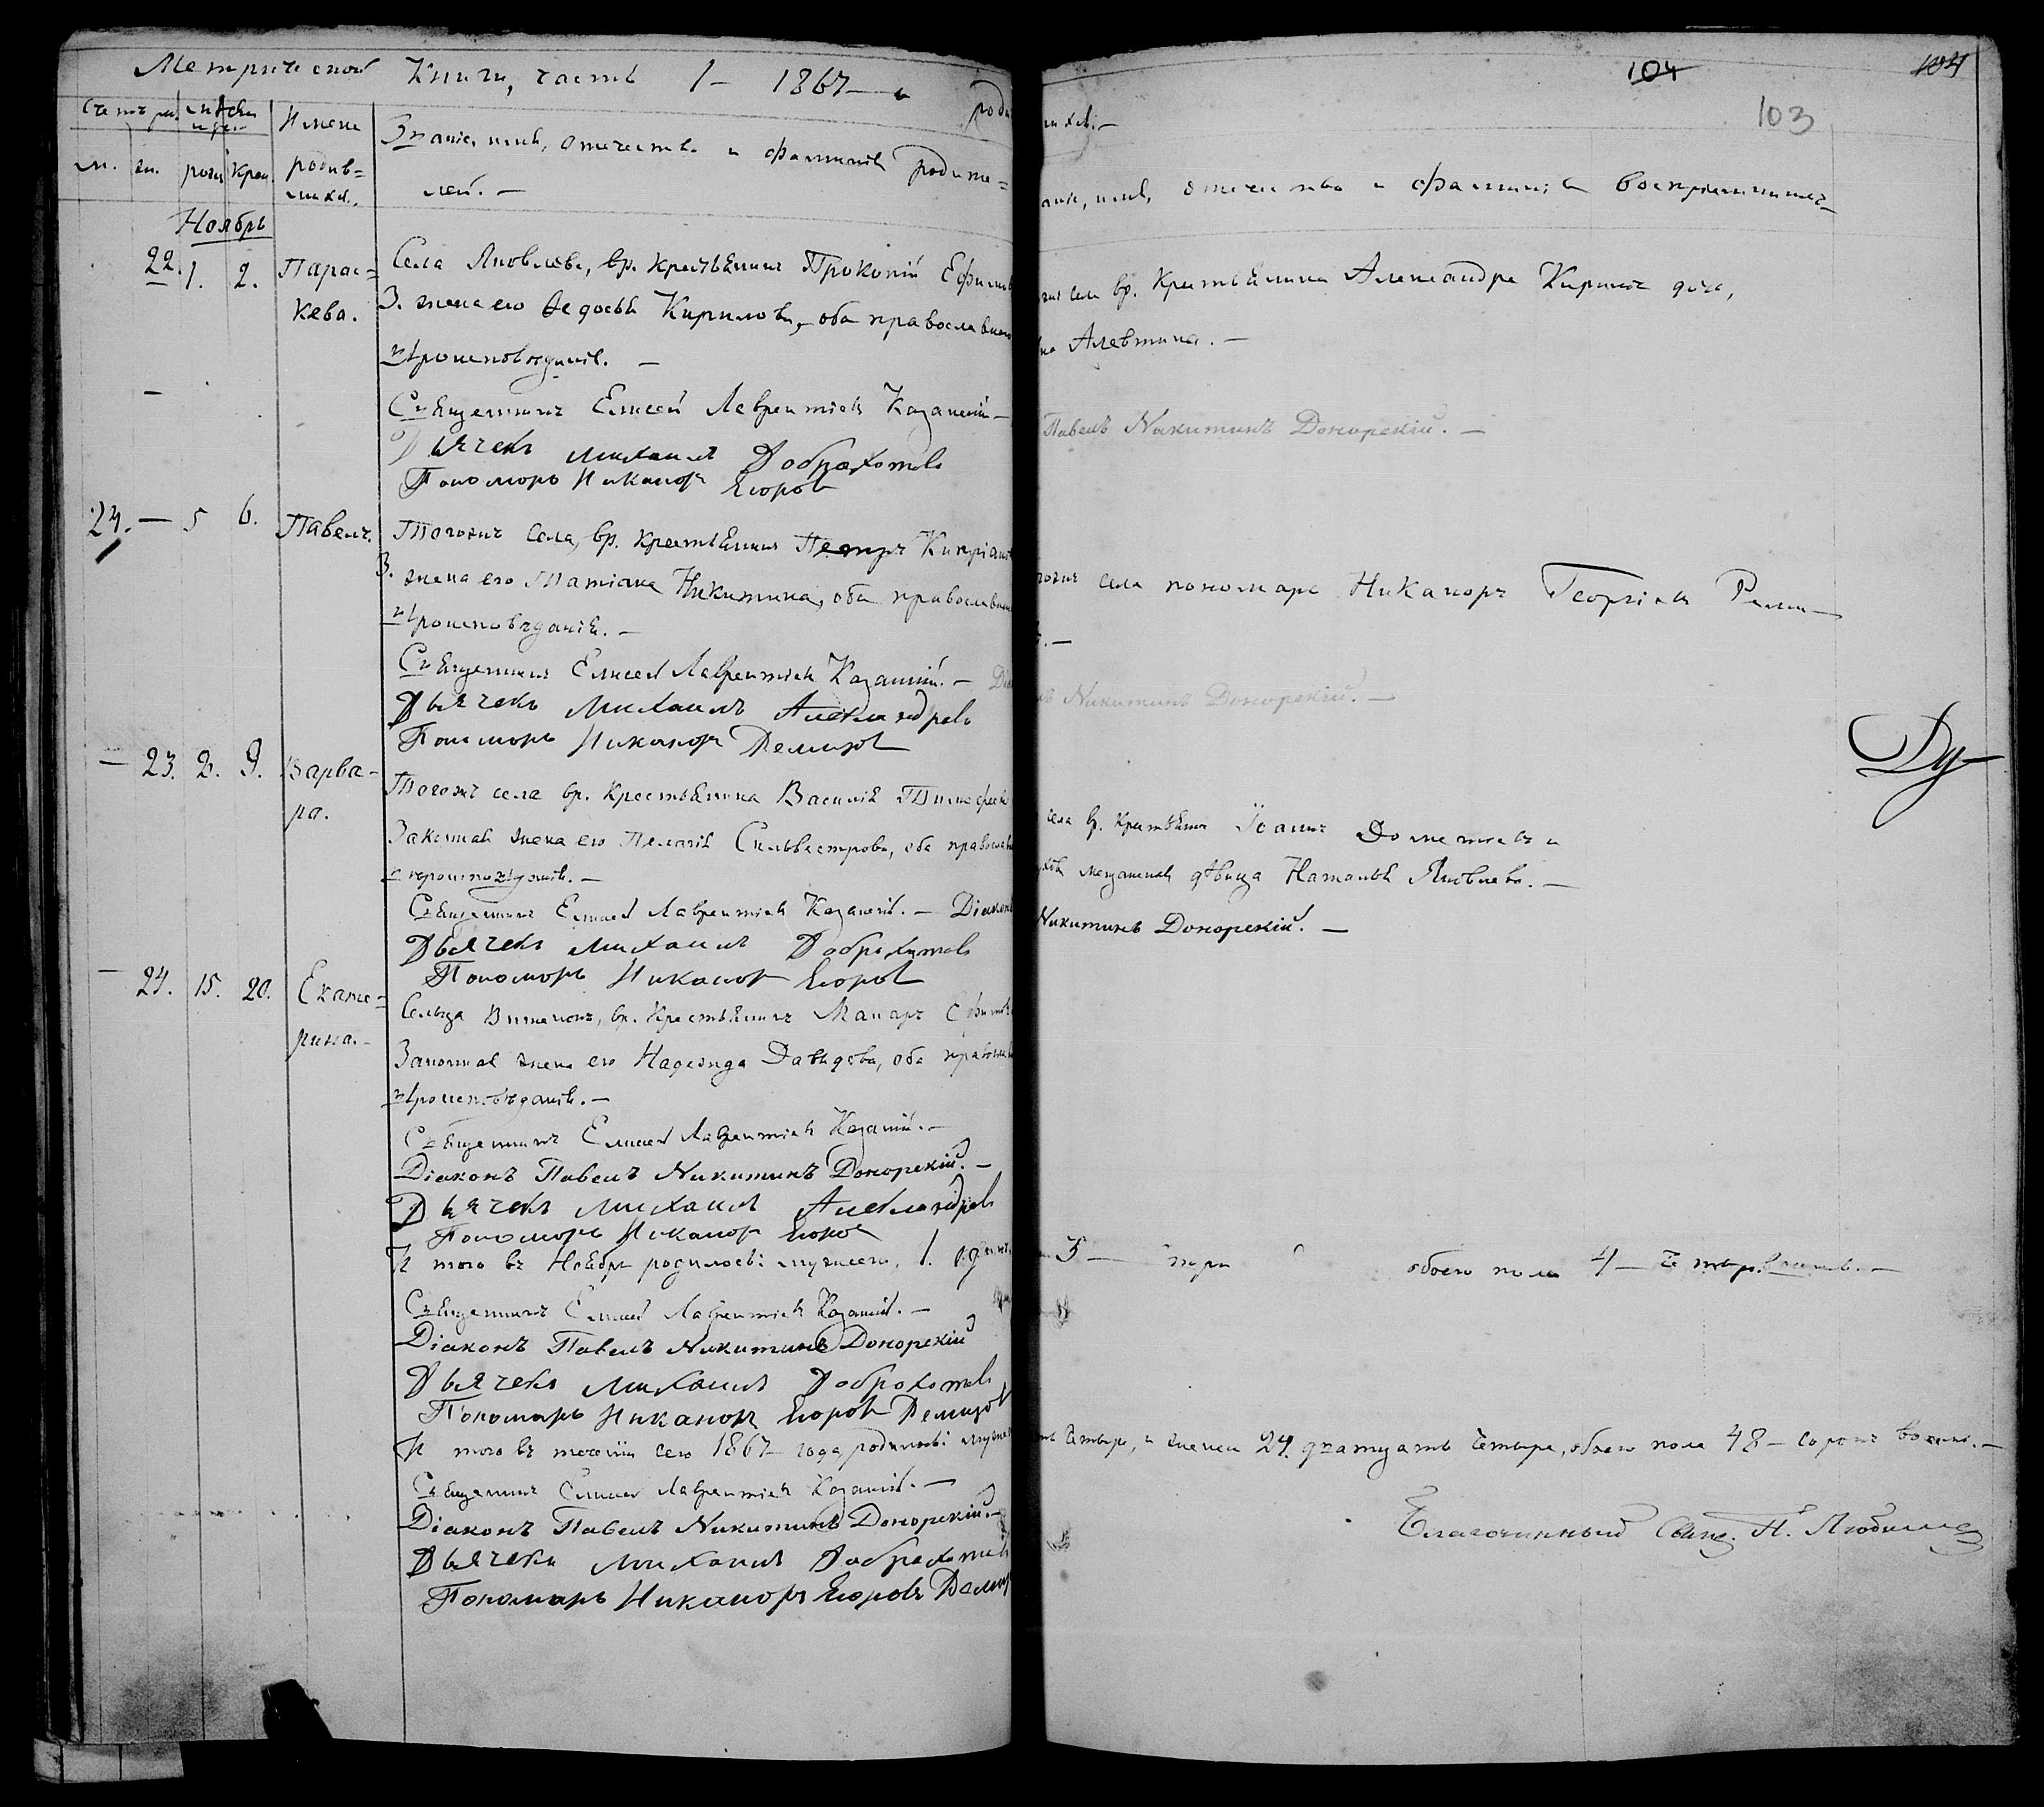 Метрической Книги, часть 1 — 1867 — о роди
Счетъ род. Имена
м. ж. рожд. крещ. родив=
шихся.
Званіе, имя, отечество и фамилія родите=
лей. —
Ноябрь
22. 1. 2. Парас=
кева.
Села Яковлева, вр. крестьянинъ Прокопій Ефимов
З. жена его Ѳедосья Кирилова, оба православнаго
вѣроисповѣданія. —
Священникъ Елисей Лаврентіевъ Казанскій —
Дьячекъ Михаилъ Доброхотовъ
Пономарь Никаноръ Егоровъ
24. — 5 6. Павелъ.
Тогожъ села, вр. крестьянинъ Петръ Кипріанов
З. жена его Татіана Никитина, оба православнаго
вѣроисповѣданія. —
Священникъ Елисей Лаврентіевъ Казанскій. —
Дьячекъ Михаилъ Александровъ
Пономарь Никаноръ Демидовъ
— 23. 2. 9. Варва-
ра.
Тогожъ села вр. крестьянина Василія Тимофеев
Законная жена его Пелагія Сильвестрова, оба православн
вѣроисповѣданія. —
Священникъ Елисей Лаврентіевъ Казанскій. — Діаконъ
Дьячекъ Михаилъ Доброхотовъ
Пономарь Никаноръ Егоровъ
— 24. 15. 20. Екате=
рина. —
Сельца вр. крестьянинъ Макаръ Ефимов
Законная жена его Надежда Давыдова, оба православн
вѣроисповѣданія. —
Священникъ Елисей Лаврентіевъ Казанскій. —
Діаконъ Павелъ Никитинъ Донорскій. —
Дьячекъ Михаилъ Александровъ
Пономарь Никаноръ Егоровъ
И того въ Ноябрѣ родилось: мужеска, 1. одинъ,
Священникъ Елисей Лаврентіевъ Казанскій. —
Діаконъ Павелъ Никитинъ Донорскій
Дьячекъ Михаилъ Доброхотовъ
Пономарь Никаноръ Егоровъ Демидовъ
И того въ теченіи сего 1867 — года родилось: мужеска
Священникъ Елисей Лаврентіевъ Казанскій. —
Діаконъ Павелъ Никитинъ Донорскій. —
Дьячекъ Михаилъ Доброхотовъ
Пономарь Никаноръ Егоровъ Демид
104 104
103
шихся. —
аніе, имя, отечество и фамилія воспріемниковъ
села вр. крестьянина Александра Кирилова дочь,
Алевтина. —
Павелъ Никитинъ Донорскій. —
тогожъ села пономарь Никаноръ Георгіевъ
Никитинъ Донорскій. —
Ду—
села вр. крестьянинъ Іоаннъ Дометіевъ и
дѣвица Наталья Яковлева. —
Никитинъ Донорскій. —
3 — три обоего пола 4 — четыре
четыре, и женска 24. двадцать четыре, обоего пола 48 — сорокъ восемь. —
Благочинный Свящ. Н. Любимов